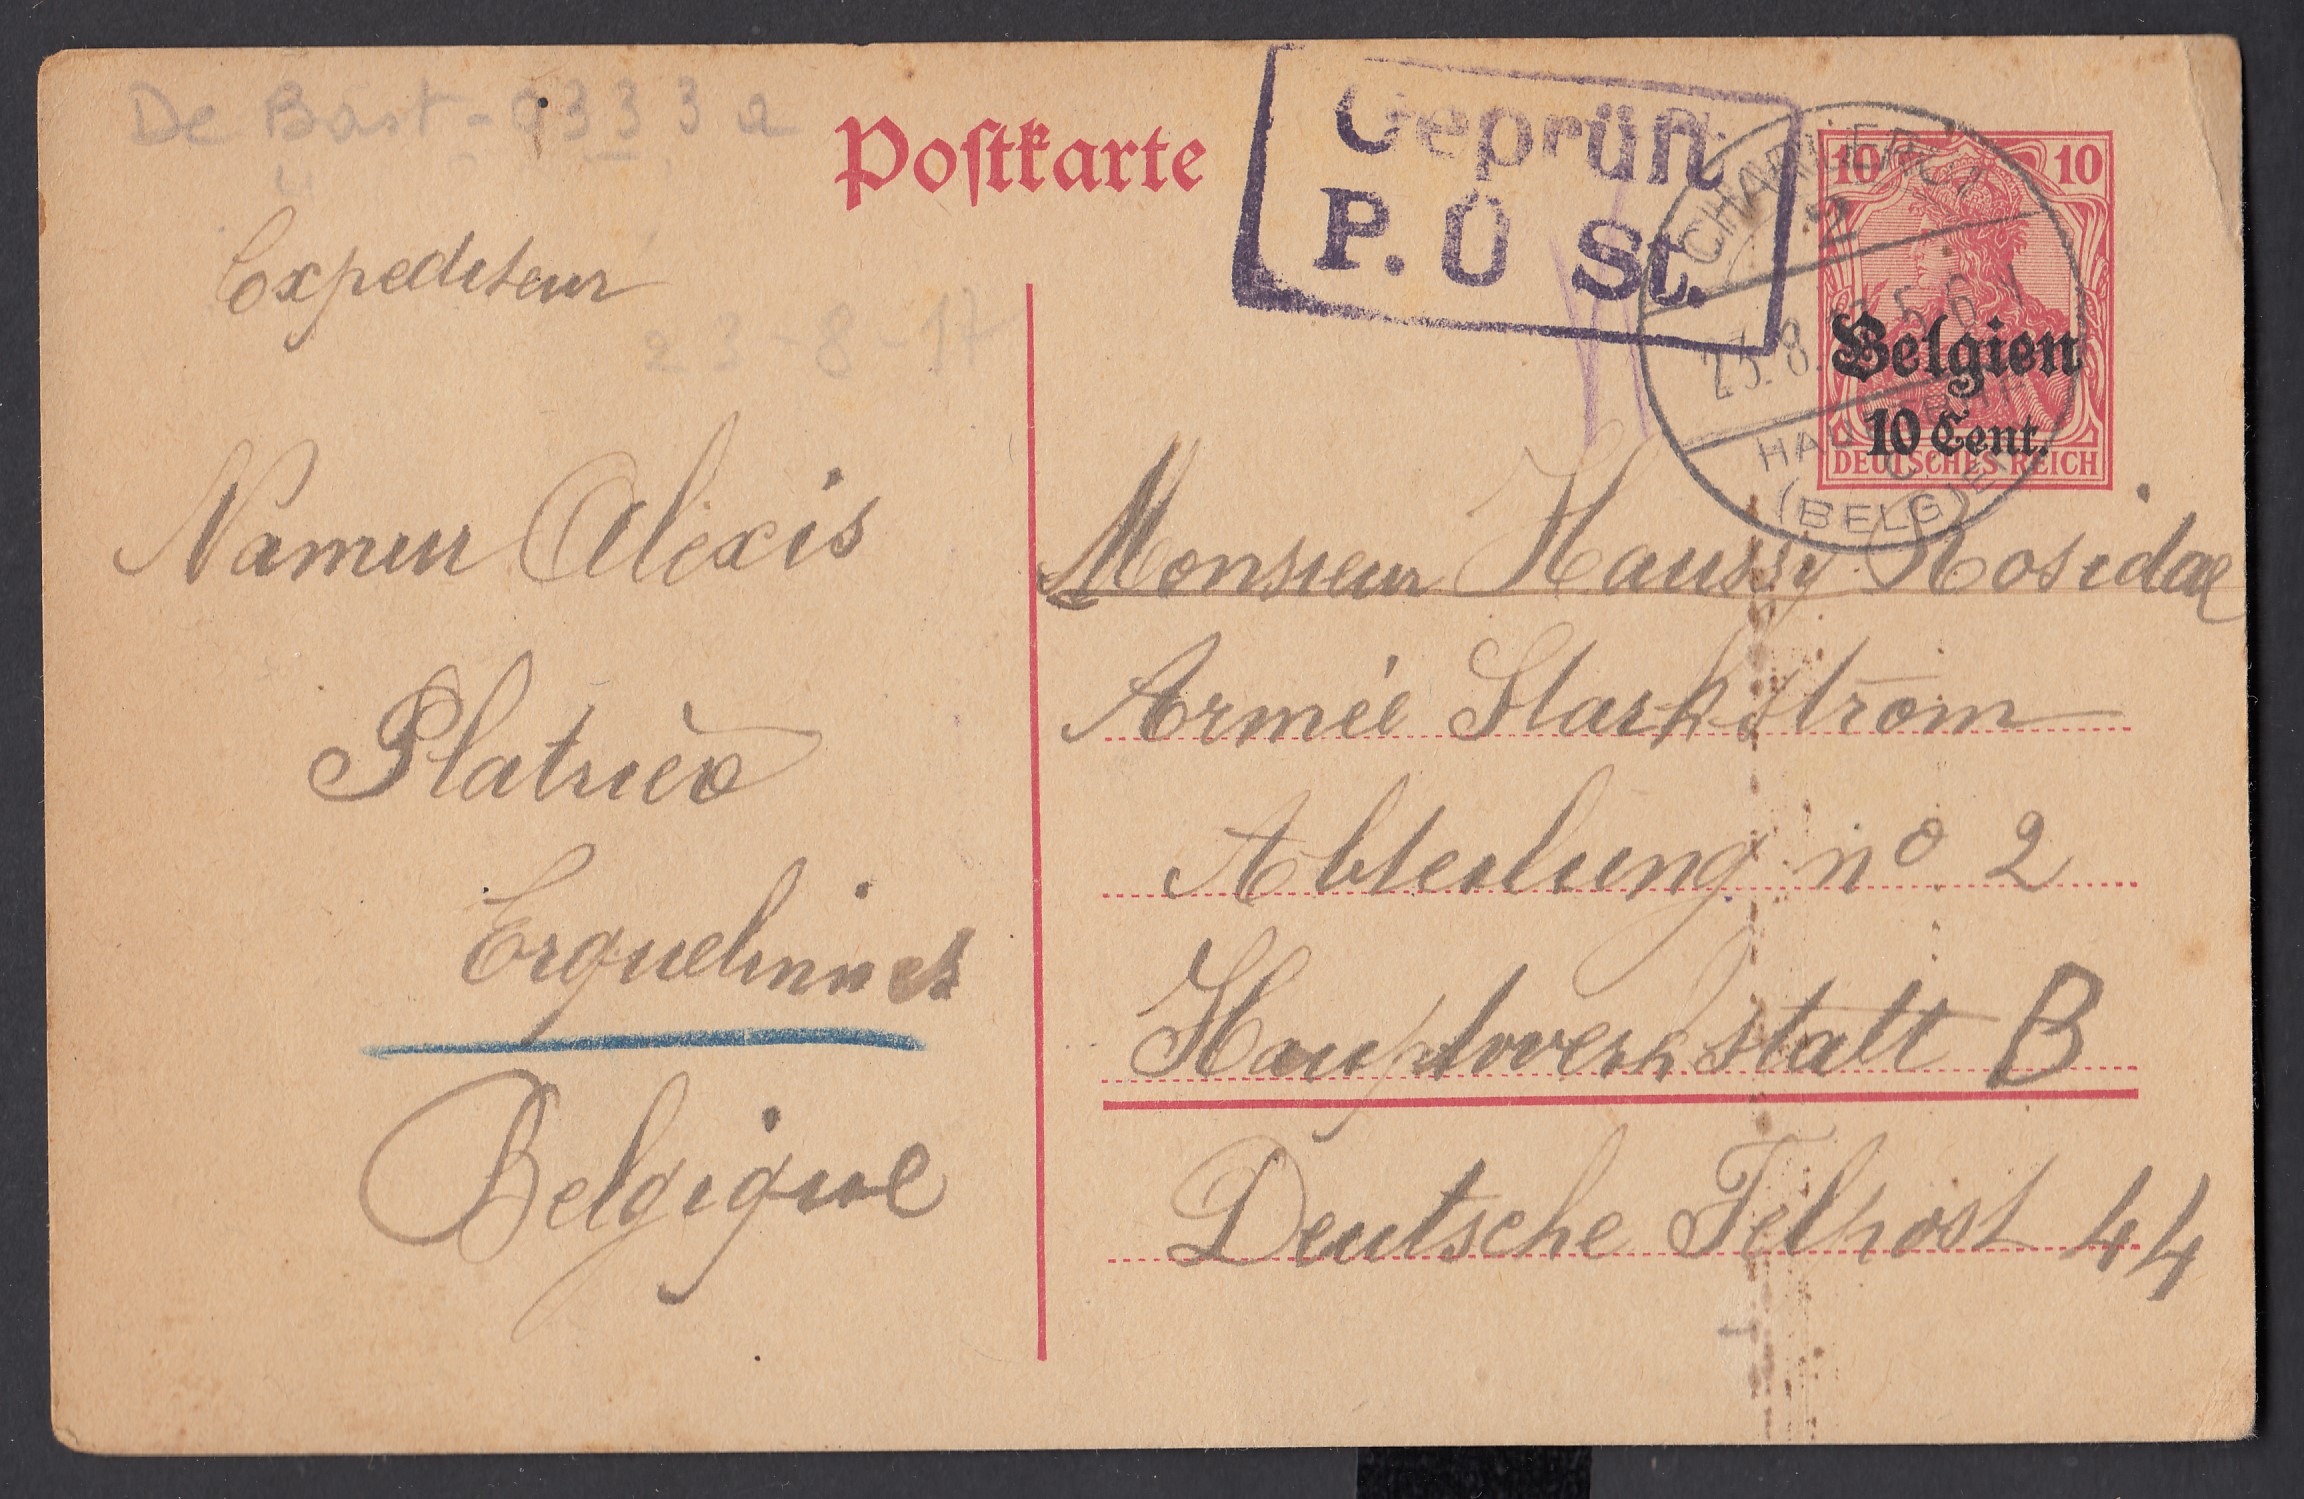 De Bast - 9333 a
Postkarte
Geprüft
P. Ü St.
CHARLEROI
23.8. 5-6
(BELGIEN)
10 10
Belgien
10 Cent.
DEUTSCHES REICH
Expediteur
23-8-17
Namur Alexis
Erquelinnes
Belgique
Monsieur Haussy
Armée Starkstrom
Abteilung n° 2
Hauptwerkstatt B
Deutsche Felpost 44